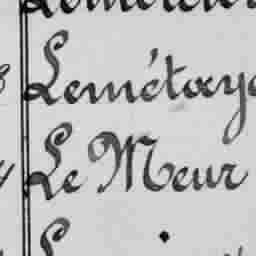 Lemétaye
Le Meur